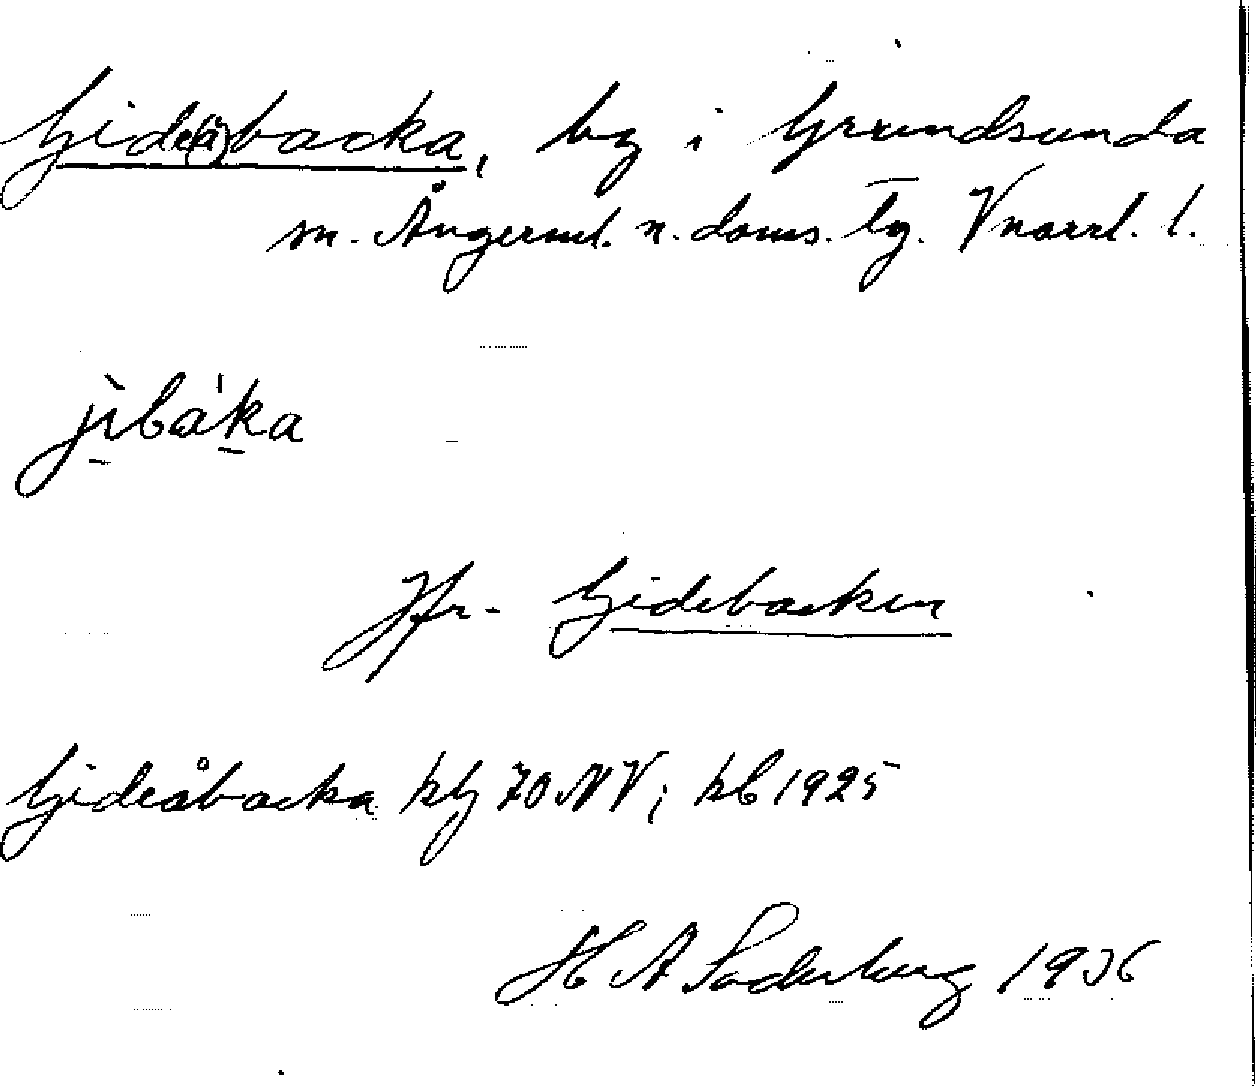 Gide(å)backa, by i Grundsunda
sn. Ångerml. n. doms. tg. Vnorrl. l.
jìbá'ka
Jfr. Gidebacken
Gideåbacka kbl 70 NV; kb 1925
H A Söderberg 1936